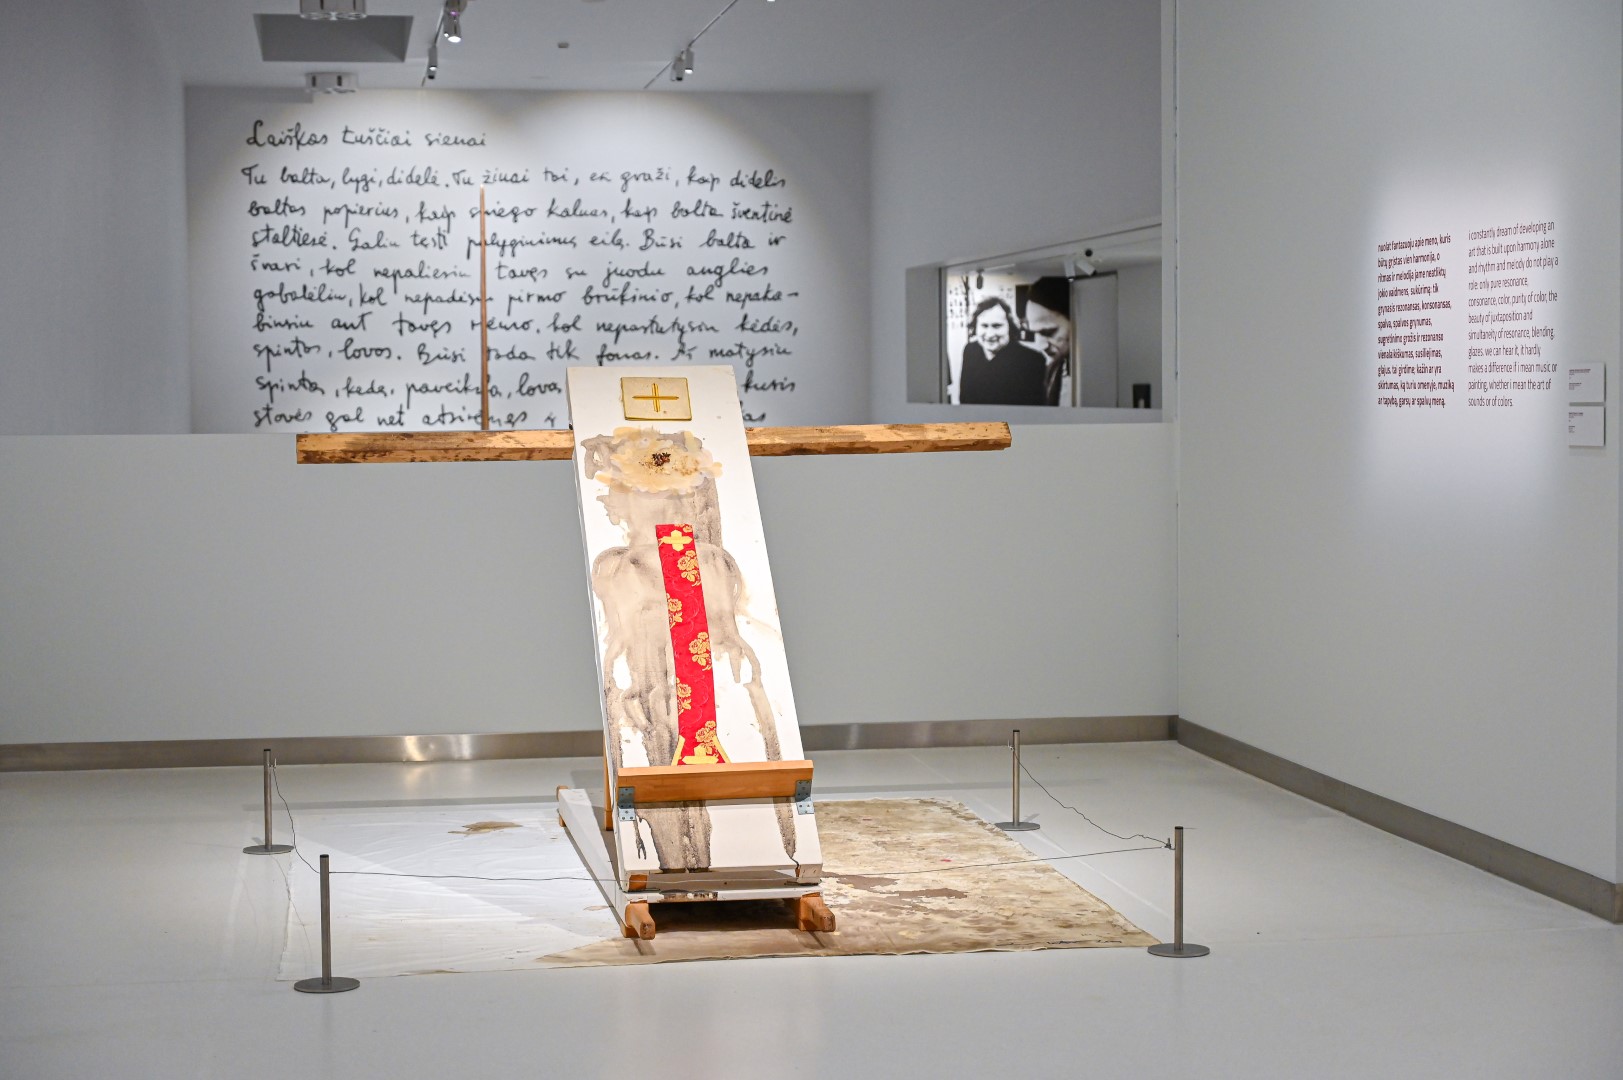 Laiškas tuščiai sienai
Tu balta, lygi, didelė. Tu žinai tai, esi graži, kaip didelis
baltas popierius, kaip sniego kalnas, kaip balta šventinė
staltiesė. Galiu tęsti palyginimų eilę. Būsi balta ir
švari, kol nepaliesiu tavęs su juodu anglies
gabalėliu, kol nepadėsiu pirmo brūkšnio, kol nepaka-
binsiu ant tavęs rėmo, kol nepastatysiu kėdės,
spintos, lovos. Būsi tada tik fonas. Aš matysiu
spintą, kėdę, paveikslą, lovą kuris
stovės gal net atsirėmęs
nuolat fantazuoju apie meną, kuris
būtų grįstas vien harmonija, o
ritmas ir melodija jame neatliktų
jokio vaidmens, sukūrimą: tik
grynasis rezonansas, konsonansas,
spalva, spalvos grynumas,
sugretinimo grožis ir rezonanso
vienalaikiškumas, susiliejimas,
glajus. tai girdime, kažin ar yra
skirtumas, ką turiu omenyje, muziką
ar tapybą, garsų ar spalvų meną.
i constantly dream of developing an
art that is built upon harmony alone
and rhythm and melody do not play a
role: only pure resonance,
consonance, color, purity of color, the
beauty of juxtaposition and
simultaneity of resonance, blending,
glazes. we can hear it, it hardly
makes a difference if i mean music or
painting, whether i mean the art of
sounds or of colors.